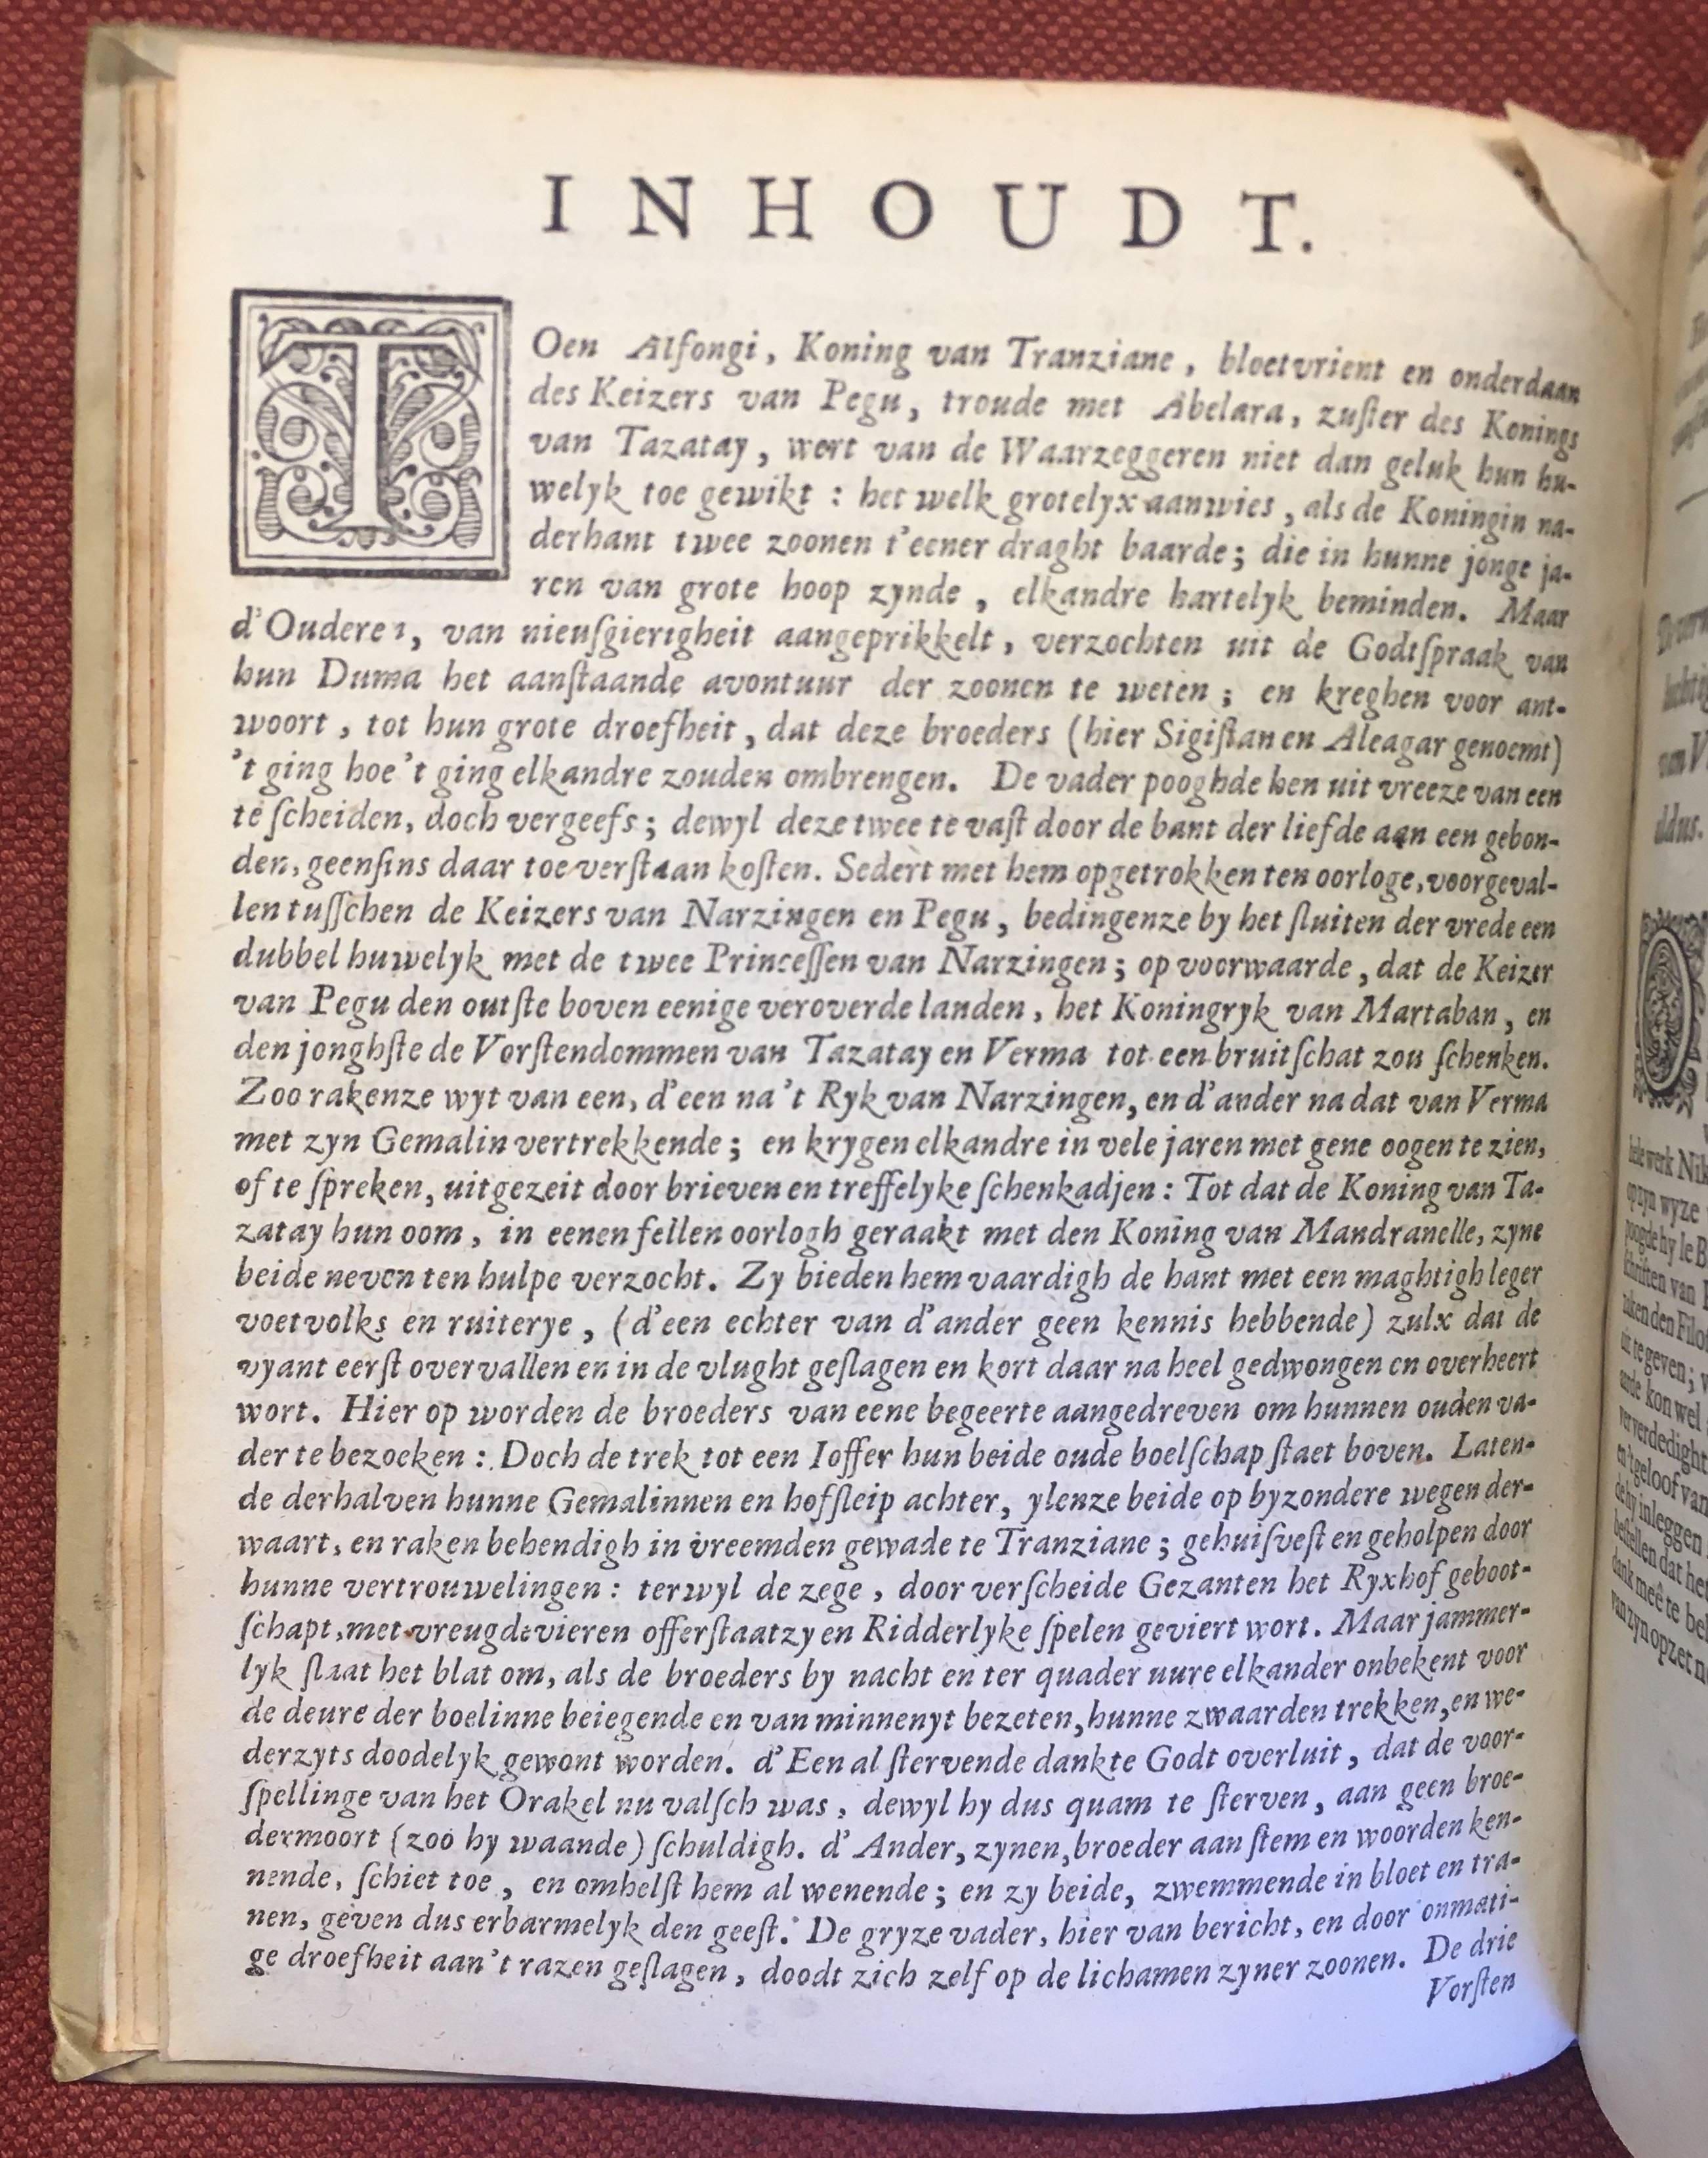 INHOUDT.
TOen Alfongi, Koning van Tranziane, bloetvrient en onderdaan
des Keizers van Pegu, troude met Abelara, zuſter des Konings
van Tazatay, wert van de Waarzeggeren niet dan geluk hun hu-
welyk toe gewikt : het welk grotelyx aanwies, als de Koningin na-
derhant twee zoonen t'eener draght baarde; die in hunne jonge ja-
ren van grote hoop zynde, elkandre hartelyk beminden. Maar
d'Ouderen, van nieuſgierigheit aangeprikkelt, verzochten uit de Godtſpraak van
hun Duma het aanſtaande avontuur der zoonen te weten; en kreghen voor ant-
woort, tot hun grote droefheit, dat deze broeders (hier Sigiſtan en Aleagar genoemt)
't ging hoe't ging elkandre zouden ombrengen. De vader pooghde hen uit vreeze van een
te ſcheiden, doch vergeefs; dewyl deze twee te vaſt door de bant der liefde aan een gebon-
den, geenſins daar toe verſtaan koſten. Sedert met hem opgetrokken ten oorloge, voorgeval-
len tuſſchen de Keizers van Narzingen en Pegu, bedingenze by het ſluiten der vrede een
dubbel huwelyk met de twee Princeſſen van Narzingen; op voorwaarde, dat de Keizer
van Pegu den outſte boven eenige veroverde landen, het Koningryk van Martaban, en
den jonghſte de Vorſtendommen van Tazatay en Verma tot een bruitſchat zou ſchenken.
Zoo rakenze wyt van een, d'een na't Ryk van Narzingen, en d'ander na dat van Verma
met zyn Gemalin vertrekkende; en krygen elkandre in vele jaren met gene oogen te zien,
of te ſpreken, uitgezeit door brieven en treffelyke ſchenkadjen: Tot dat de Koning van Ta-
zatay hun oom, in eenen fellen oorlogh geraakt met den Koning van Mandranelle, zyne
beide neven ten hulpe verzocht. Zy bieden hem vaardigh de hant met een maghtigh leger
voetvolks en ruiterye, (d'een echter van d'ander geen kennis hebbende) zulx dat de
vyant eerſt overvallen en in de vlught geſlagen en kort daar na heel gedwongen en overheert
wort. Hier op worden de broeders van eene begeerte aangedreven om hunnen ouden va-
der te bezoeken: Doch de trek tot een Ioffer hun beide oude boelſchap ſtaet boven. Laten-
de derhalven hunne Gemalinnen en hofſleip achter, ylenze beide op byzondere wegen der-
waart, en raken behendigh in vreemden gewade te Tranziane; gehuiſveſt en geholpen door
hunne vertrouwelingen: terwyl de zege, door verſcheide Gezanten het Ryxhof geboot-
ſchapt, met vreugdevieren offerſtaatzy en Ridderlyke ſpelen geviert wort. Maar jammer-
lyk ſlaat het blat om, als de broeders by nacht en ter quader uure elkander onbekent voor
de deure der boelinne beiegende en van minnenyt bezeten, hunne zwaarden trekken, en we-
derzyts doodelyk gewont worden. d'Een al ſtervende dankte Godt overluit, dat de voor-
ſpellinge van het Orakel nu valſch was, dewyl hy dus quam te ſterven, aan geen broe-
dermoort (zoo hy waande) ſchuldigh. d'Ander, zynen broeder aan ſtem en woorden ken-
nende, ſchiet toe, en omhelſt hem al wenende; en zy beide, zwemmende in bloet en tra-
nen, geven dus erbarmelyk den geeſt. De gryze vader, hier van bericht, en door onmati-
ge droefheit aan't razen geſlagen, doodt zich zelf op de lichamen zyner zoonen. De drie
Vorſten
hele werk Nik
op zyn wyze
poogde hy le B
ſchriften van
zaken den Filo
uit te geven;
aarde kon wel
ververdedight
en 't geloof van
de hy inleggen
beſtellen dat het
dank meê te be
van zyn opzet n